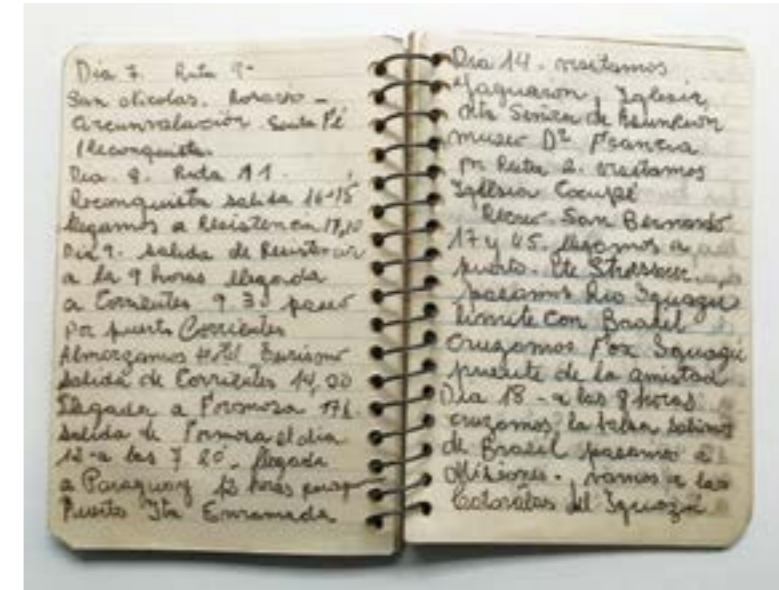 Dia 7. Ruta 9-
San Nicolas. Rosario -
Circunvalación Santa Fé
Reconquista
Dia. 8. Ruta 11.
Reconquista salida 16-15
llegamos a Resistencia 17,10
Dia 9. salida de Resistencia
a la 9 horas llegada
a Corrientes 9.30 paseo
por puerto Corrientes
Almorzamos Hotel
salida de Corrientes 14,00
llegada a Formosa 17h.
salida de Formosa el dia
12-a las 7 20, llegada
a Paraguay 12 horas
Puerto Ita Enramada
Dia 14. visitamos
Yaguaron, Iglesia,
Ntra Señora de Asuncion
museo Dr Francia
por Ruta 2. visitamos
Iglesia Cacupé
Recreo San Bernardo
17 y 45. llegamos a
puerto. Pte Stroessner
pasamos Rio Iguazú
limite con Brasil
cruzamos Fox Iguazú
puente de la amistad
Dia 18 - a las 8 horas
cruzamos la balsa salimos
de Brasil pasamos a
Misiones. vamos a las
Cataratas del Iguazú